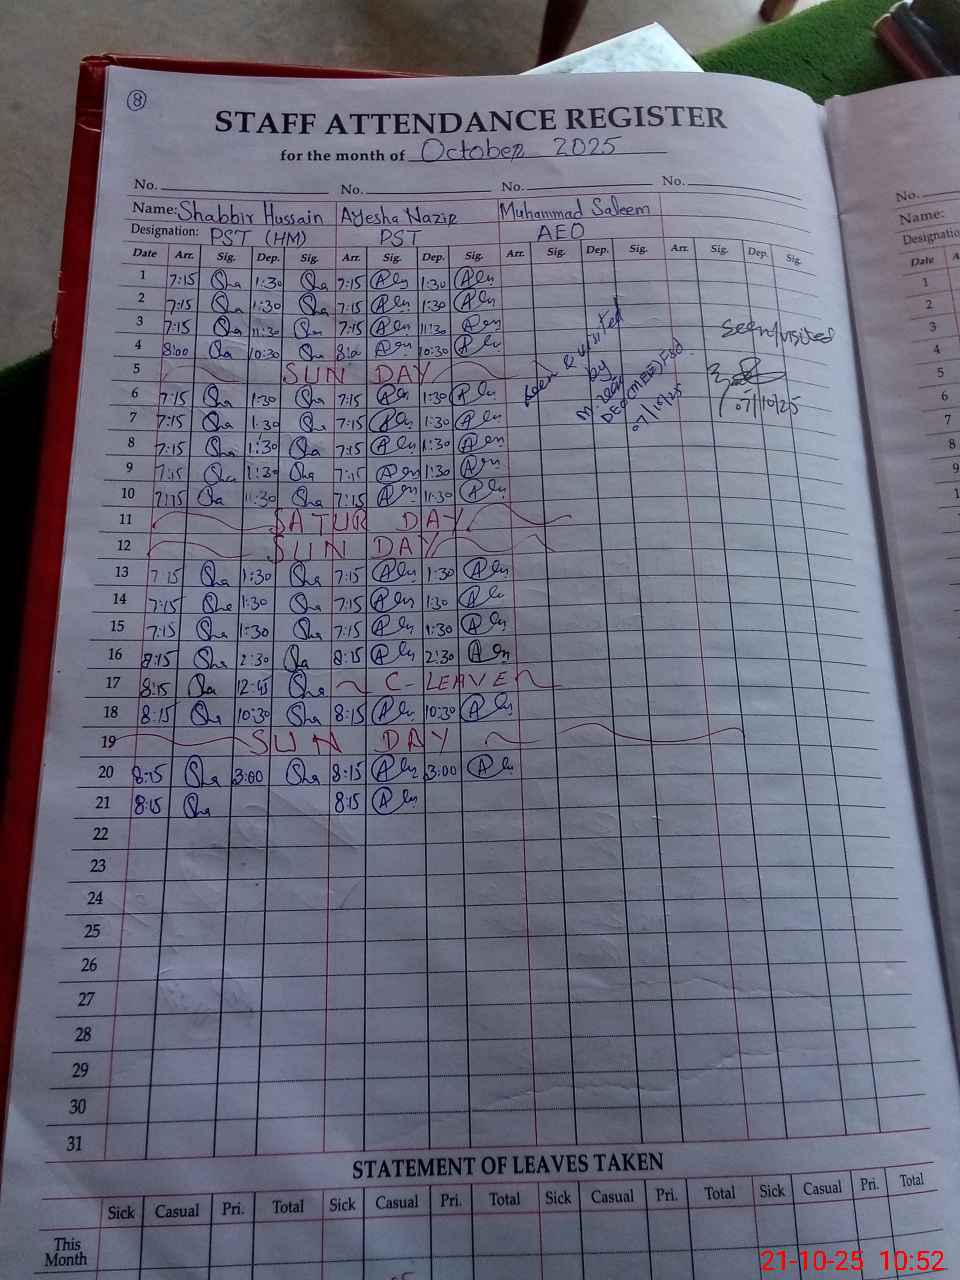 8
STAFF ATTENDANCE REGISTER
for the month of October 2025
No. No. No. No.
Name: Shabbir Hussain Ayesha Nazir Muhammad Saleem
Designation: PST (HM) PST AEO
Date Arr. Sig. Dep. Sig. Arr. Sig. Dep. Sig. Arr. Sig. Dep. Sig. Arr. Sig. Dep. Sig.
1 7:15 Sha 1:30 Sha 7:15 1:30
2 7:15 Sha 1:30 Sha 7:15 1:30
3 7:15 Sha 11:30 Sha 7:15 11:30
4 8:00 Sha 10:30 Sha 8:00 10:30
5 SUN DAY
6 7:15 Sha 1:30 Sha 7:15 1:30
7 7:15 Sha 1:30 Sha 7:15 1:30
8 7:15 Sha 1:30 Sha 7:15 1:30
9 7:15 Sha 1:30 Sha 7:15 1:30
10 7:15 Sha 11:30 Sha 7:15 11:30
11 SATUR DAY
12 SUN DAY
13 7:15 Sha 1:30 Sha 7:15 1:30
14 7:15 Sha 1:30 Sha 7:15 1:30
15 7:15 Sha 1:30 Sha 7:15 1:30
16 8:15 Sha 2:30 Sha 8:15 2:30
17 8:15 Sha 12:45 Sha C-LEAVE
18 8:15 Sha 10:30 Sha 8:15 10:30
19 SUN DAY
20 8:15 Sha 3:00 Sha 8:15 3:00
21 8:15 Sha 8:15
22
23
24
25
26
27
28
29
30
31
Seen & visited
by
07/10/25
Seen/visited
07/10/25
STATEMENT OF LEAVES TAKEN
Sick Casual Pri. Total Sick Casual Pri. Total Sick Casual Pri. Total Sick Casual Pri. Total
This
Month
No.
Name:
Designatio
Date
1
2
3
4
5
6
7
8
9
21-10-25 10:52